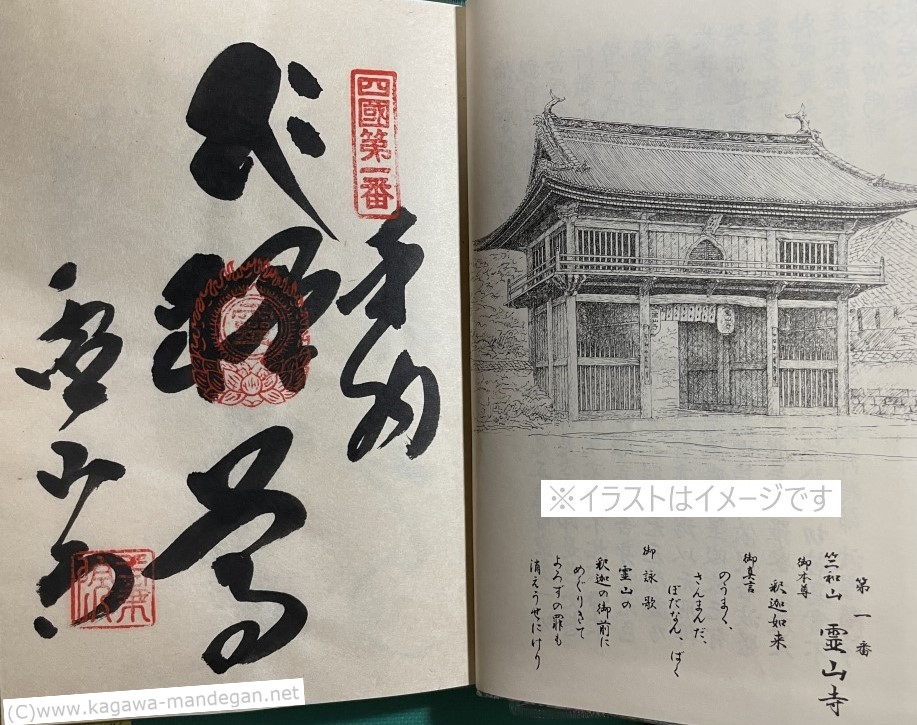 ※イラストはイメージです
第一番
竺和山 霊山寺
御本尊
釈迦如来
御真言
のうまく、
さんまんだ、
ぼだなん、ばく
御詠歌
霊山の
釈迦の御前に
めぐりきて
よろずの罪も
消えうせにけり
四國第一番
奉納
霊山寺
(C)www.kagawa-mandegan.net